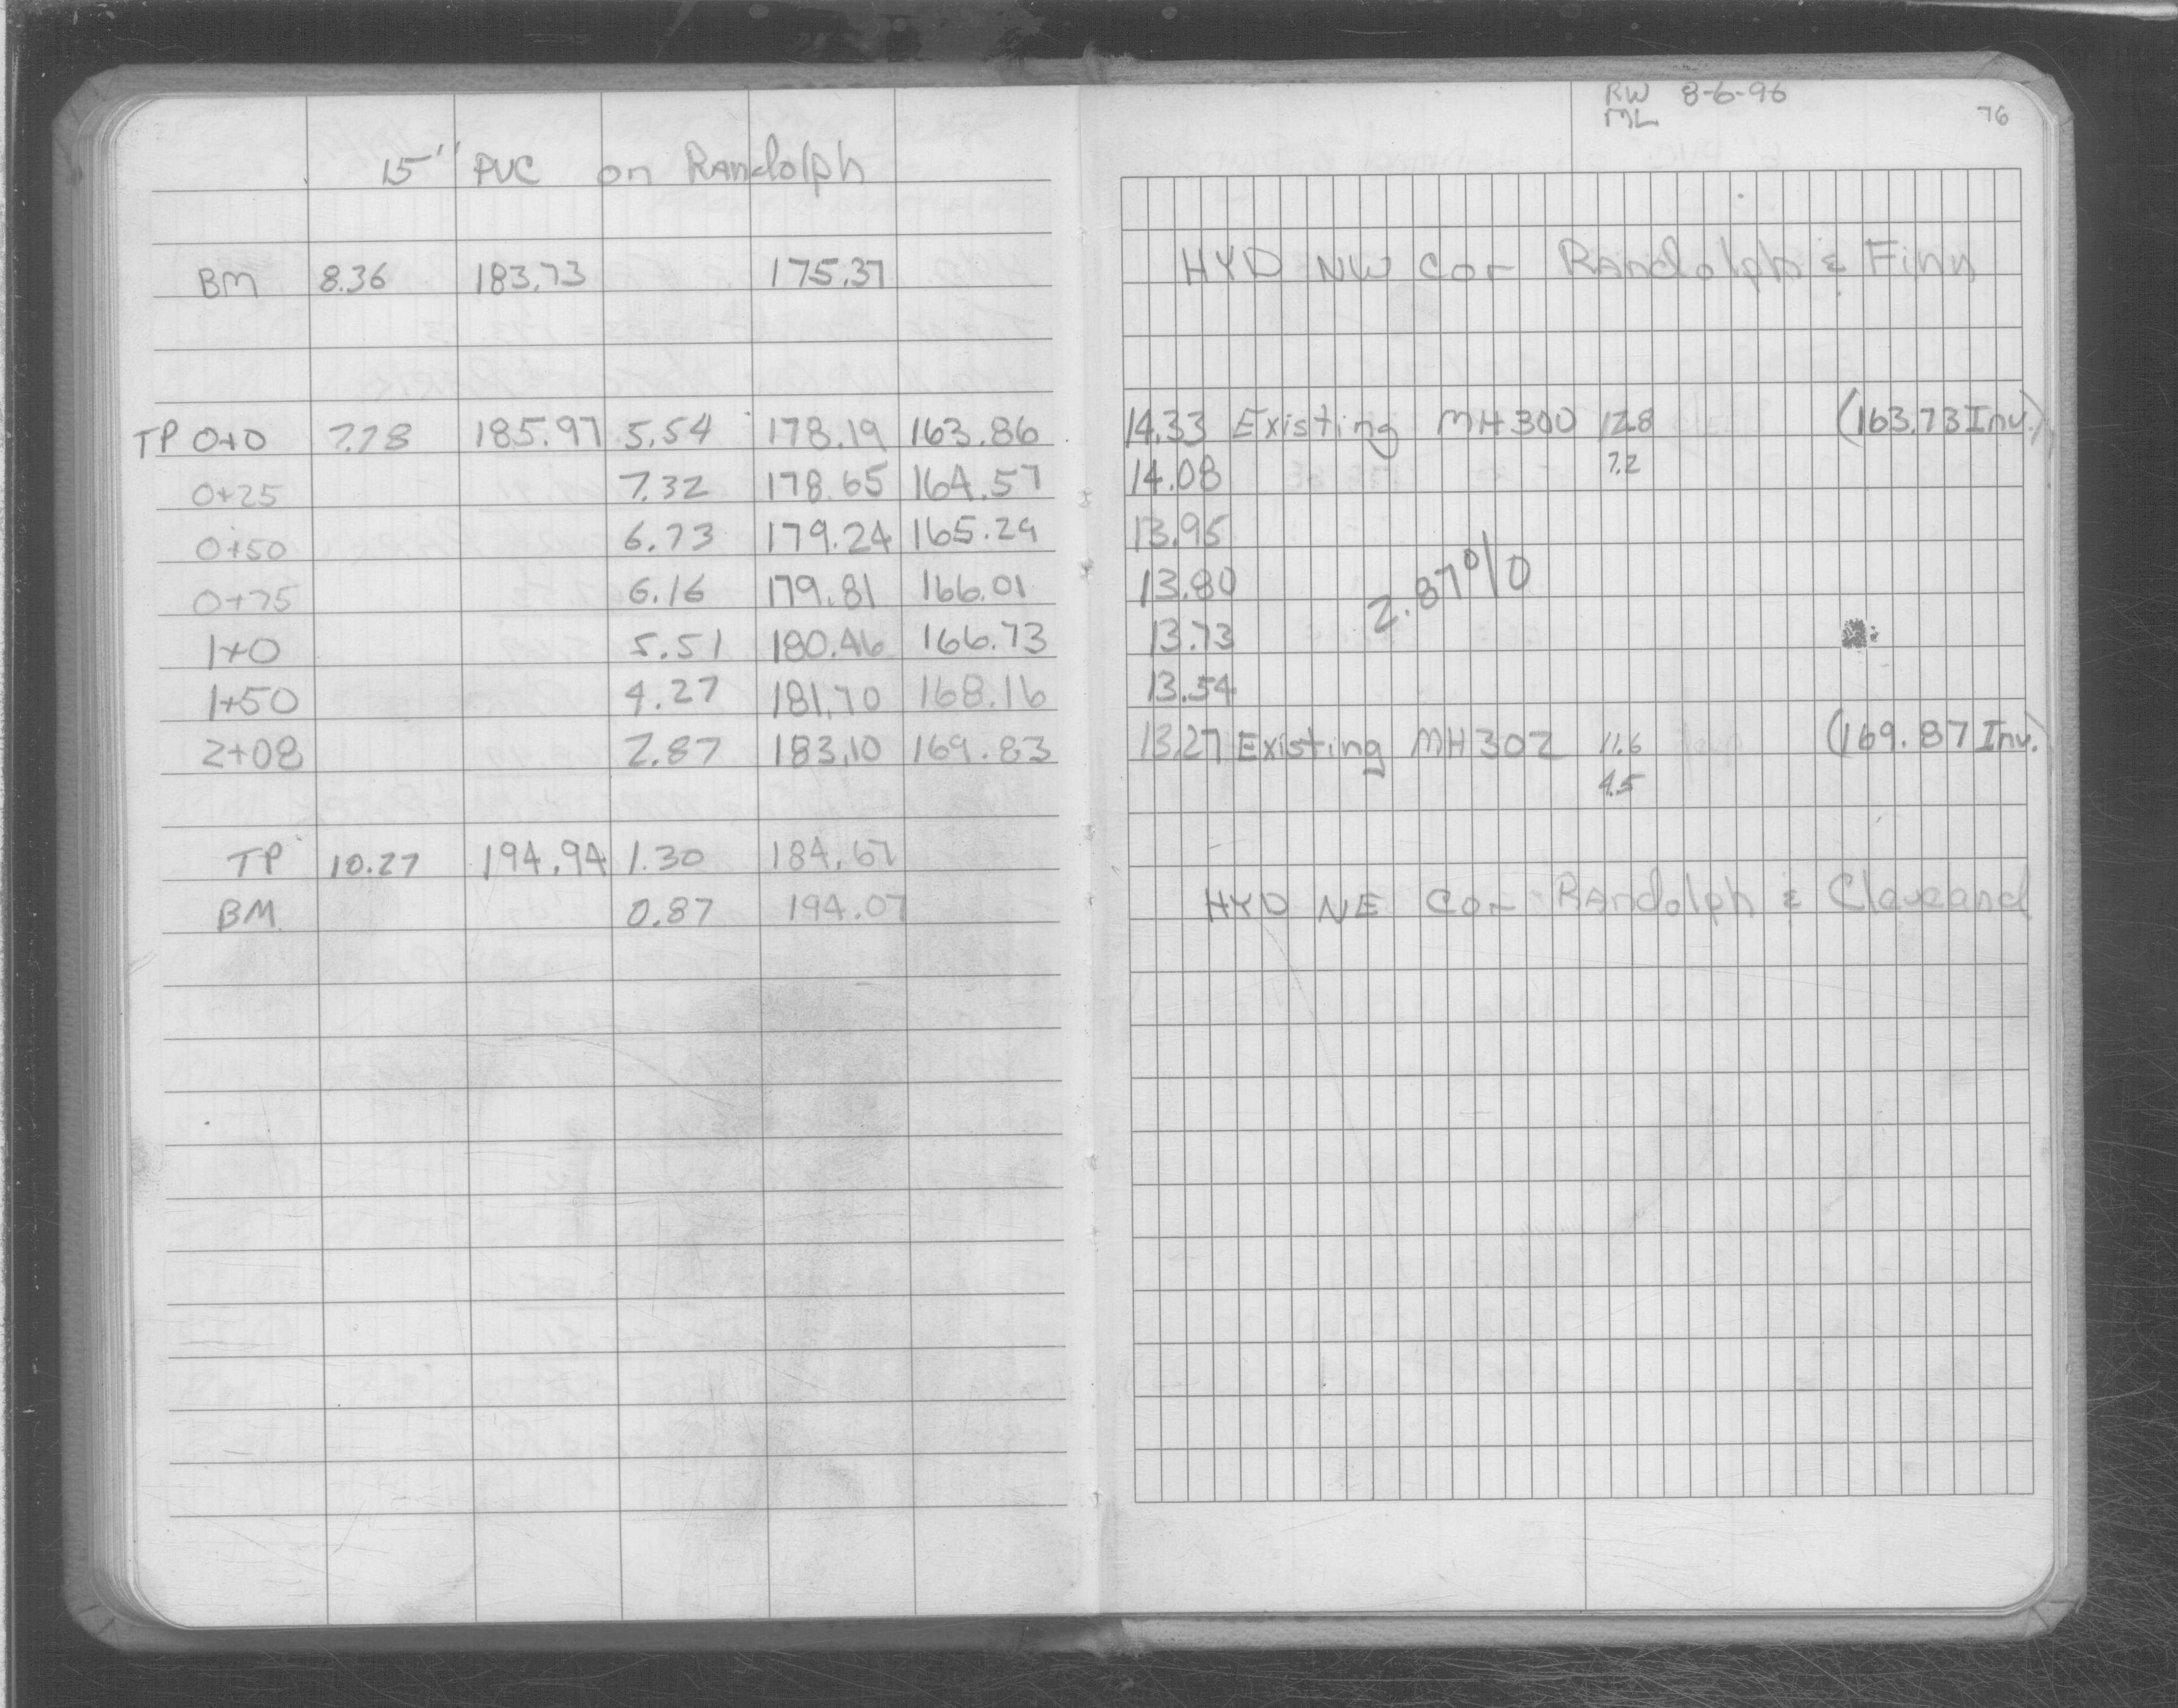 RW 8-6-96
ML
76
15" PVC on Randolph
BM 8.36 183.73 175.37 HYD NW Cor Randolph & Finn
TP 0+0 7.78 185.97 5.54 178.19 163.86 14.33 Existing MH300 12.8 (163.73 Inv.)
7.2
0+25 7.32 178.65 164.57 14.08
0+50 6.73 179.24 165.29 13.95
0+75 6.16 179.81 166.01 13.80
2.87%
1+0 5.51 180.46 166.73 13.73
1+50 4.27 181.70 168.16 13.54
2+08 2.87 183.10 169.83 13.27 Existing MH302 11.6 (169.87 Inv.)
4.5
TP 10.27 194.94 1.30 184.67
BM 0.87 194.07 HYD NE Cor Randolph & Cleveand